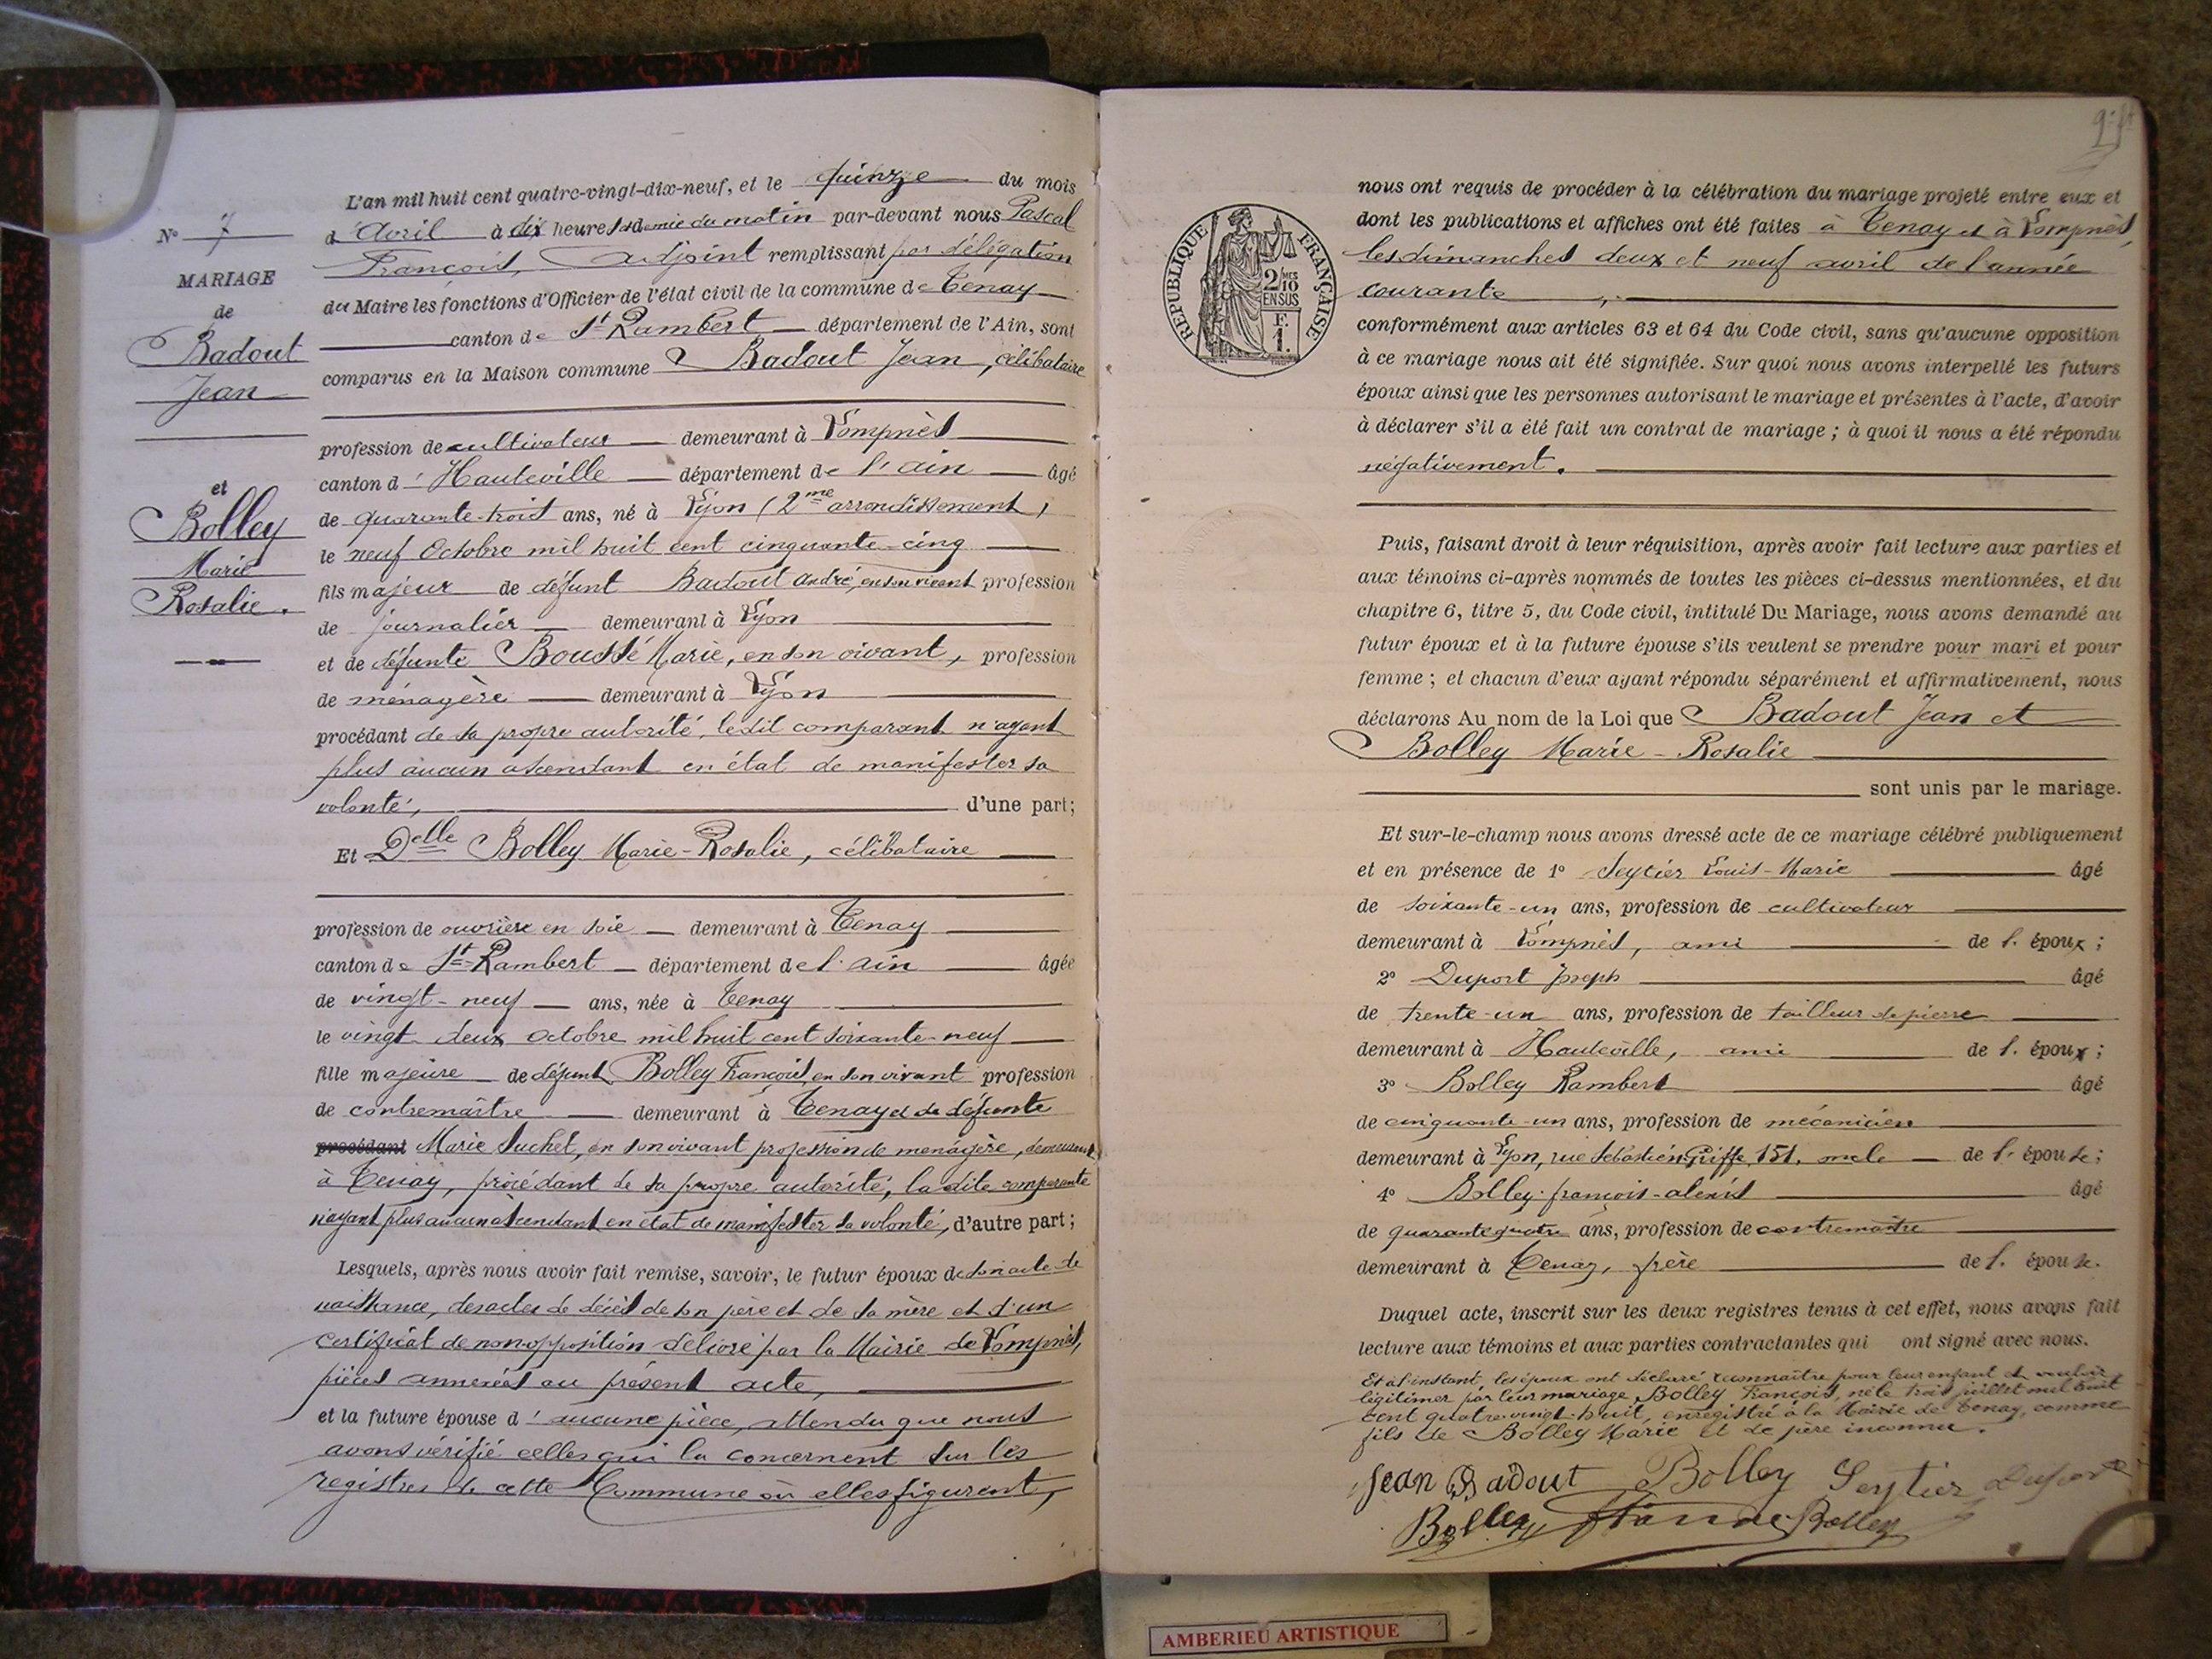 L'an mil huit cent quatre-vingt-dix-neuf, et le quinze du mois
d'Avril à dix heures et demie du matin par-devant nous Pascal
François, Adjoint remplissant par délégation
du Maire les fonctions d'Officier de l'état civil de la commune de Tenay
canton de St Rambert département de l'Ain, sont
comparus en la Maison commune Badout Jean, célibataire
profession de cultivateur demeurant à Lompnès
canton d'Hauteville département de l'ain âgé
de quarante-trois ans, né à Lyon (2me arrondissement)
le neuf Octobre mil huit cent cinquante-cinq
fils majeur de défunt Badout André, en son vivant profession
de journalier demeurant à Lyon
et de défunte Boussé Marie, en son vivant, profession
de ménagère demeurant à Lyon
procédant de sa propre autorité, ledit comparant n'ayant
plus aucun ascendant en état de manifester sa
volonté, d'une part;
Et Delle Bolley Marie-Rosalie, célibataire
profession de ouvrière en soie demeurant à Tenay
canton de St-Rambert département de l'ain âgée
de vingt-neuf ans, née à Tenay
le vingt-deux octobre mil huit cent soixante-neuf
fille majeure de défunt Bolley François, en son vivant profession
de contremaître demeurant à Tenay et de défunte
procédant Marie Suchet, en son vivant profession de ménagère, demeurant
à Tenay, procédant de sa propre autorité, la dite comparante
n'ayant plus aucun ascendant en état de manifester sa volonté, d'autre part;
Lesquels, après nous avoir fait remise, savoir, le futur époux de son acte de
naissance, des actes de décès de son père et de sa mère et d'un
certificat de non opposition délivré par la Mairie de Lompnès,
pièces annexées au présent acte,
et la future épouse d'aucune pièce, attendu que nous
avons vérifié celles qui la concernent sur les
registres de cette Commune où elles figurent,
No 7
MARIAGE
de
Badout
Jean
et
Bolley
Marie
Rosalie.
REPUBLIQUE FRANÇAISE
2/10 MES
EN SUS
F.
1.
nous ont requis de procéder à la célébration du mariage projeté entre eux et
dont les publications et affiches ont été faites à Tenay et à Lompnès,
les dimanches deux et neuf avril de l'année
courante
conformément aux articles 63 et 64 du Code civil, sans qu'aucune opposition
à ce mariage nous ait été signifiée. Sur quoi nous avons interpellé les futurs
époux ainsi que les personnes autorisant le mariage et présentes à l'acte, d'avoir
à déclarer s'il a été fait un contrat de mariage ; à quoi il nous a été répondu
négativement.
Puis, faisant droit à leur réquisition, après avoir fait lecture aux parties et
aux témoins ci-après nommés de toutes les pièces ci-dessus mentionnées, et du
chapitre 6, titre 5, du Code civil, intitulé Du Mariage, nous avons demandé au
futur époux et à la future épouse s'ils veulent se prendre pour mari et pour
femme ; et chacun d'eux ayant répondu séparément et affirmativement, nous
déclarons Au nom de la Loi que Badout Jean et
Bolley Marie-Rosalie
sont unis par le mariage.
Et sur-le-champ nous avons dressé acte de ce mariage célébré publiquement
et en présence de 1o Seytier Louis-Marie âgé
de soixante-un ans, profession de cultivateur
demeurant à Lompnès, ami de l. époux ;
2o Duport Joseph âgé
de trente-un ans, profession de tailleur de pierre
demeurant à Hauteville, ami de l. époux ;
3o Bolley Rambert âgé
de cinquante-un ans, profession de mécanicien
demeurant à Lyon, rue Sébastien Griffe, 151, oncle de l. épouse ;
4o Bolley françois-alexis âgé
de quarante quatre ans, profession de contremaître
demeurant à Tenay, frère de l. épouse.
Duquel acte, inscrit sur les deux registres tenus à cet effet, nous avons fait
lecture aux témoins et aux parties contractantes qui ont signé avec nous.
Et à l'instant, les époux ont déclaré reconnaître pour leur enfant et vouloir
légitimer par leur mariage, Bolley François, né le trois juillet mil huit
cent quatre-vingt-huit, enregistré à la Mairie de Tenay, comme
fils de Bolley Marie et de père inconnu.
Jean Badout Bolley Seytier Duport
Bolley Bolley
AMBERIEU ARTISTIQUE